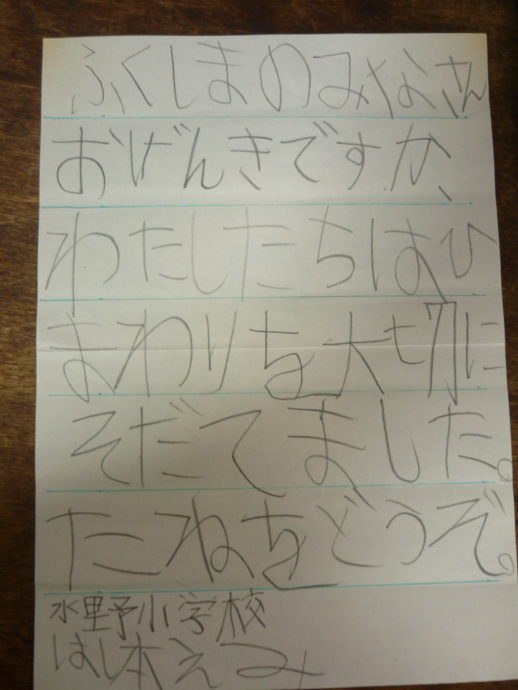 ふくしまのみなさん
おげんきですか、
わたしたちは、ひ
まわりを大切に
そだてました。
たねをどうぞ。
水野小学校
はし本えみ